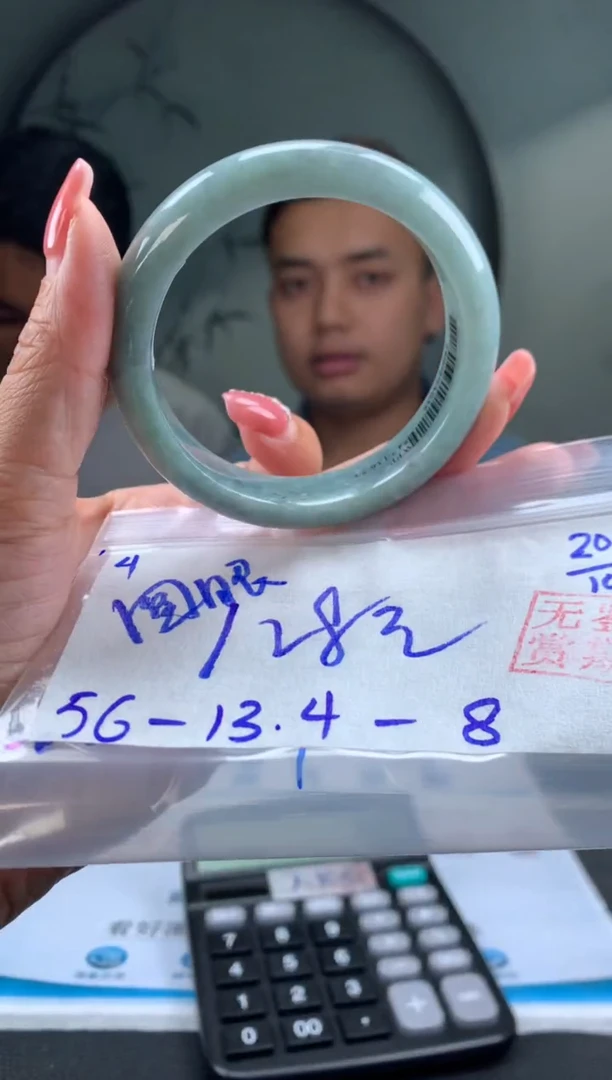 4
圆
128元
56-13.4-8
20
10
无
赏
看好
7 8 9
4 5 6
1 2 3 + -
0 00 .